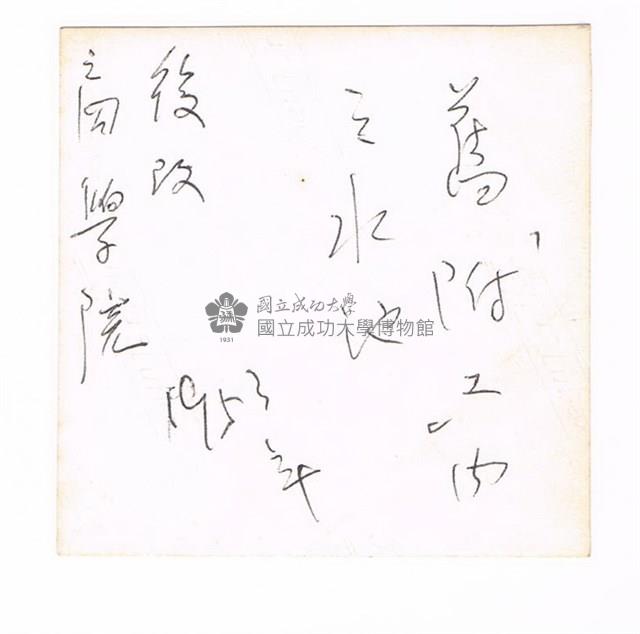 舊「附工」內
之水池
1953年
後改
之商學院
國立成功大學
國立成功大學博物館
1931